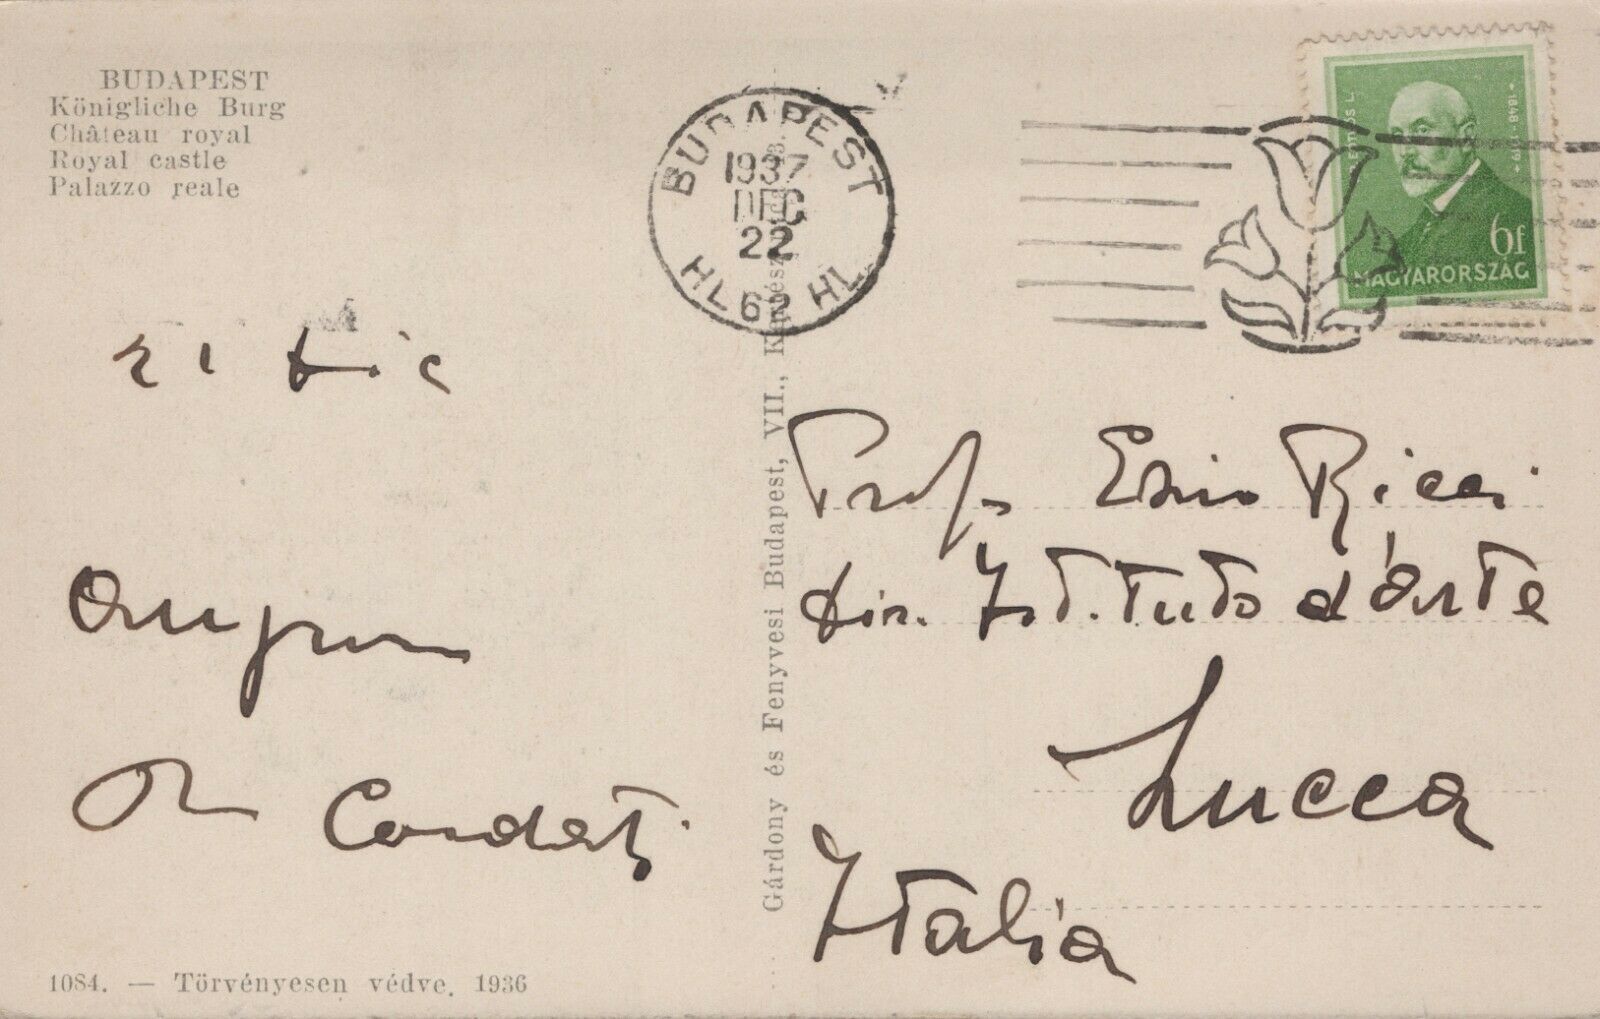 BUDAPEST
Königliche Burg
Château royal
Royal castle
Palazzo reale
BUDAPEST
1937
DEC
22
HL 62 HL
6f
MAGYARORSZÁG
21 dic
Auguri
Cordati
Prof. Ezio Ricci
dir. Istituto d'Arte
Lucca
Italia
Gárdony és Fenyvesi Budapest, VII.,
1084. — Törvényesen védve. 1936